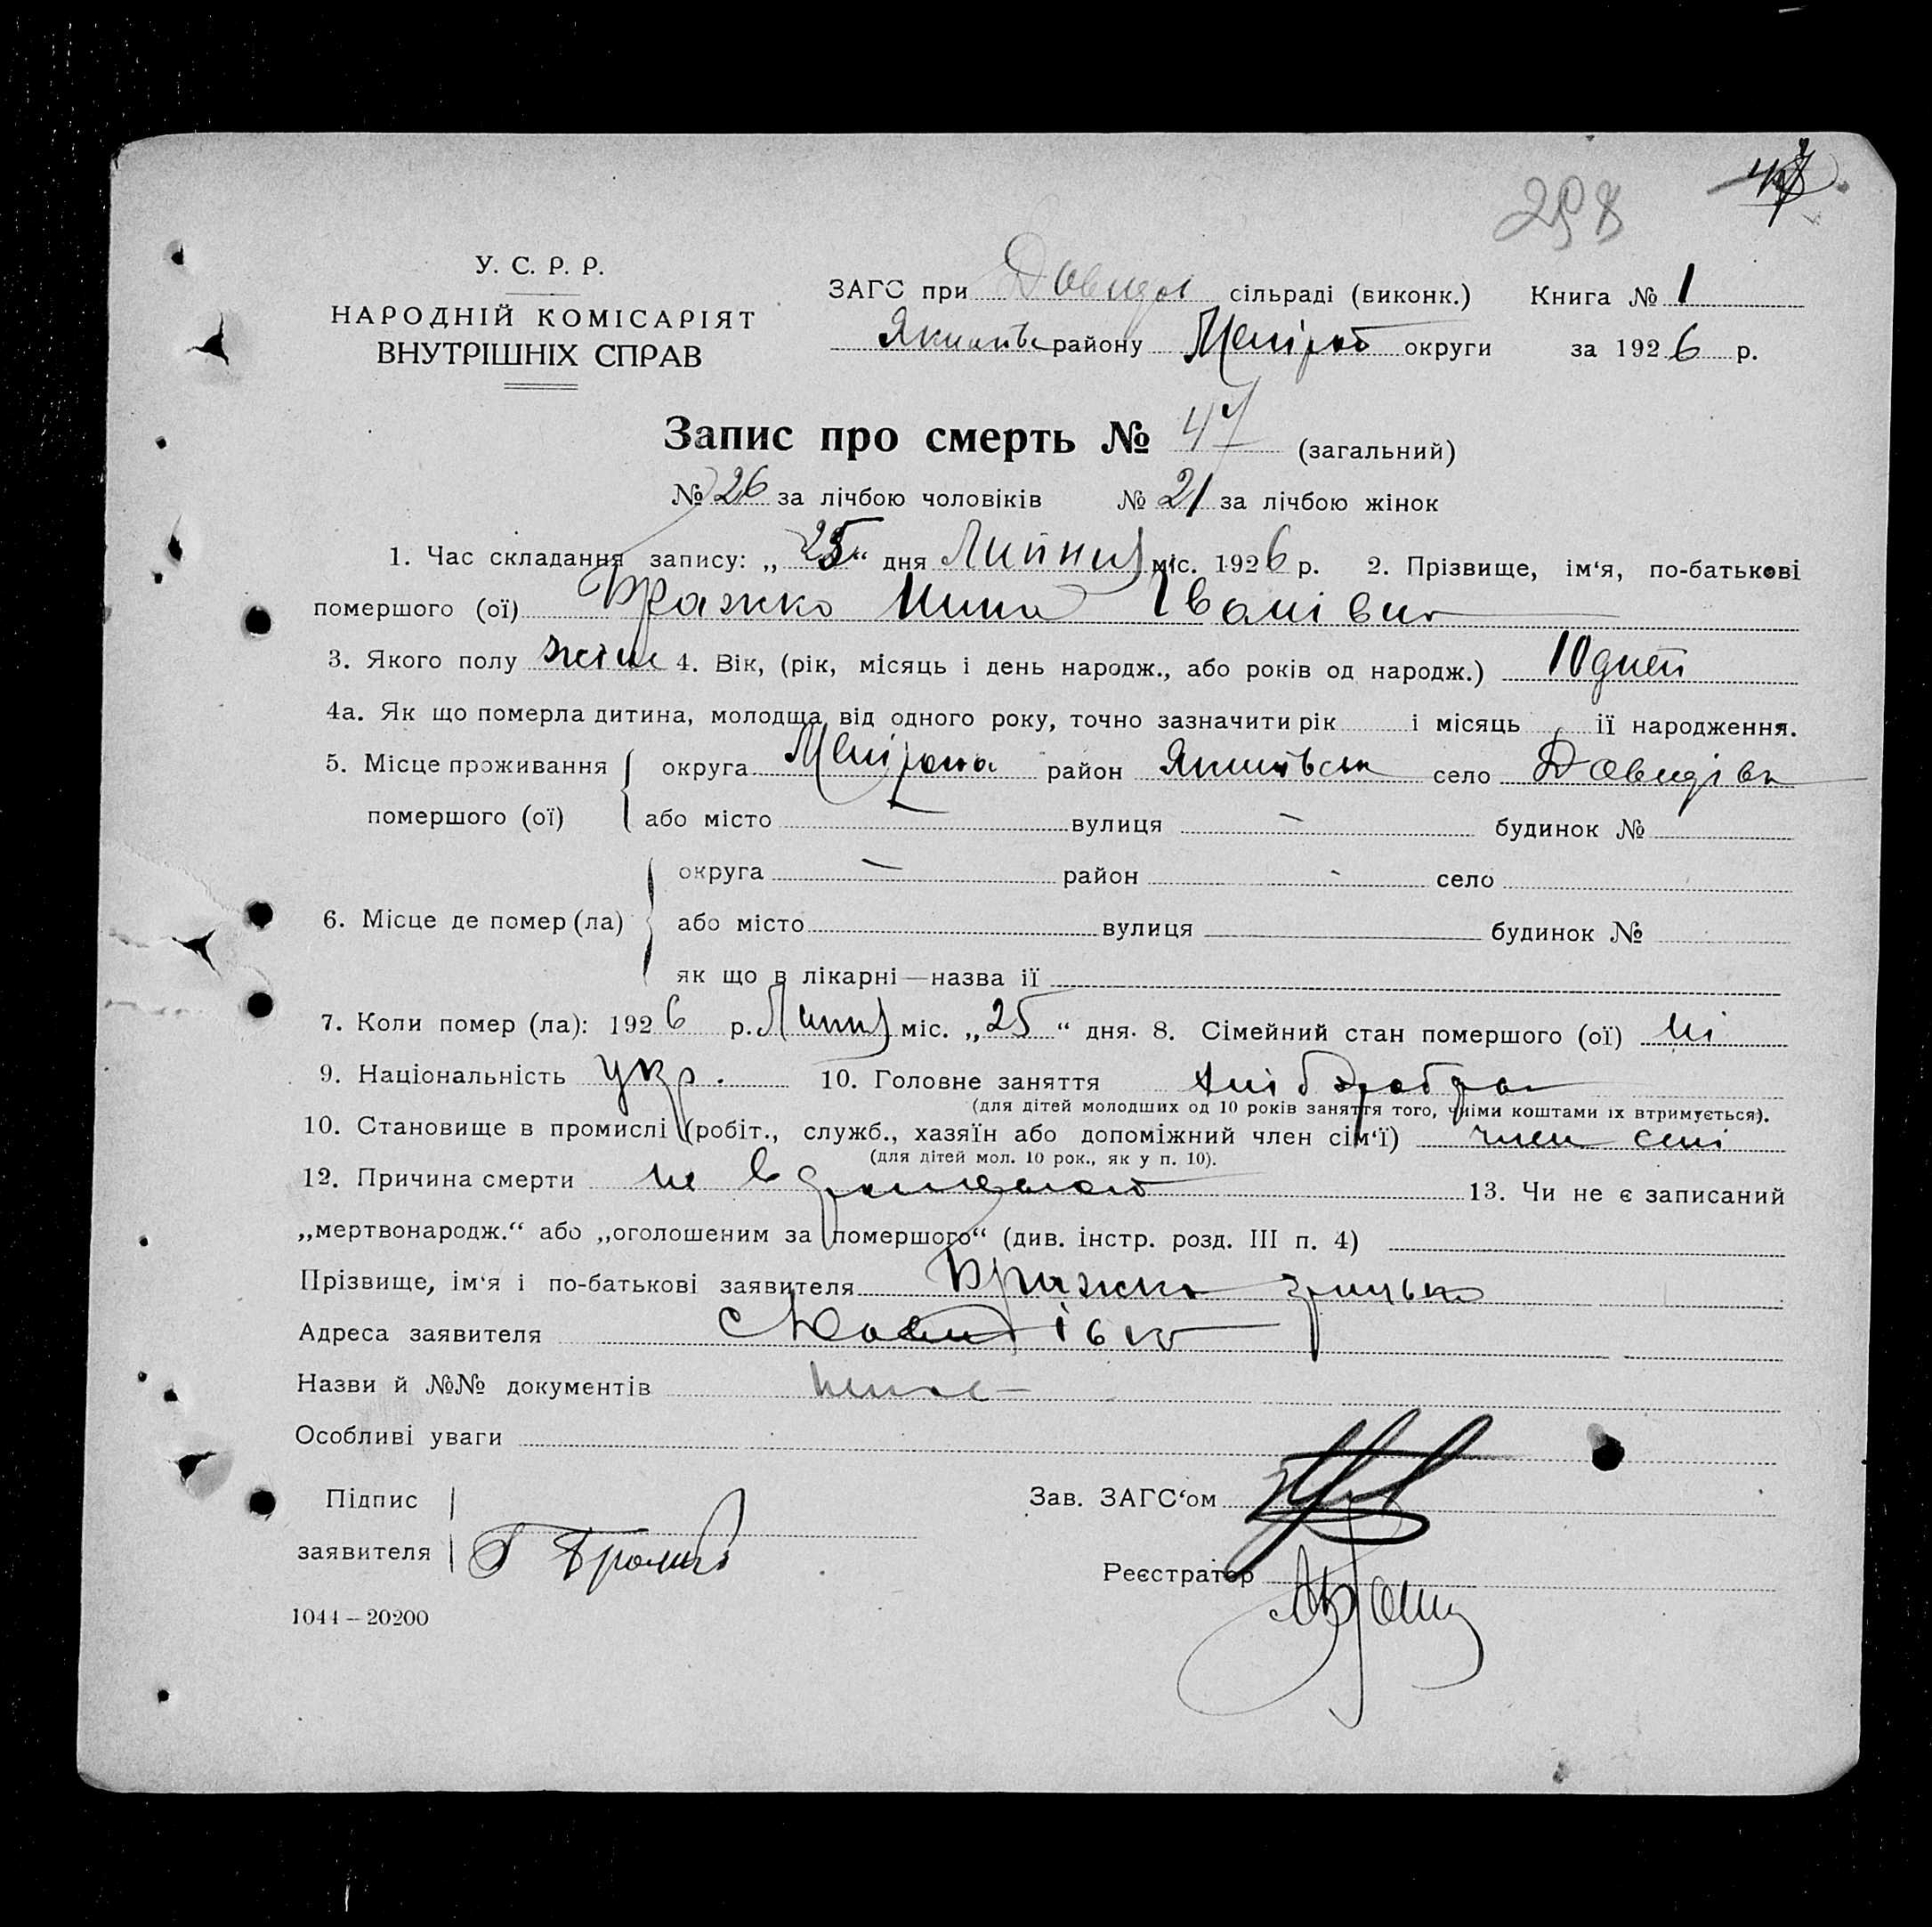 298
У. С. Р. Р.
НАРОДНІЙ КОМІСАРІЯТ
ВНУТРІШНІХ СПРАВ
ЗАГС при Давидов сільраді (виконк.) Книга № 1
району округи за 1926 р.
Запис про смерть № 47 (загальний)
№ 26 за лічбою чоловіків № 21 за лічбою жінок
1. Час складання запису: „25“ дня Липня міс. 1926 р. 2. Прізвище, ім‘я, по-батькові
помершого (ої) Бражко Нина Іванівна
3. Якого полу жіне 4. Вік, (рік, місяць і день народж., або років од народж.) 10 дней
4а. Як що померла дитина, молодща від одного року, точно зазначити рік і місяць ії народження.
5. Місце проживання округа район село Давидівка
помершого (ої) або місто вулиця — будинок №
округа — район - село
6. Місце де помер (ла) або місто вулиця будинок №
як що в лікарні—назва ії
7. Коли помер (ла): 1926 р. Липня міс. „25“ дня. 8. Сімейний стан помершого (ої) ні
9. Національність укр. 10. Головне заняття хлібороб
(для дітей молодших од 10 років заняття того, чиїми коштами їх втримується).
10. Становище в промислі (робіт., служб., хазяїн або допоміжний член сім‘ї) член семі
(для дітей мол. 10 рок., як у п. 10).
12. Причина смерти не 13. Чи не є записаний
„мертвонародж.“ або „оголошеним за помершого“ (див. інстр. розд. III п. 4)
Прізвище, ім‘я і по-батькові заявителя Бражко Грицько
Адреса заявителя с Давидівка
Назви й №№ документів немає
Особливі уваги
Підпис Зав. ЗАГС‘ом
заявителя Г
Реєстратор
1044—20200